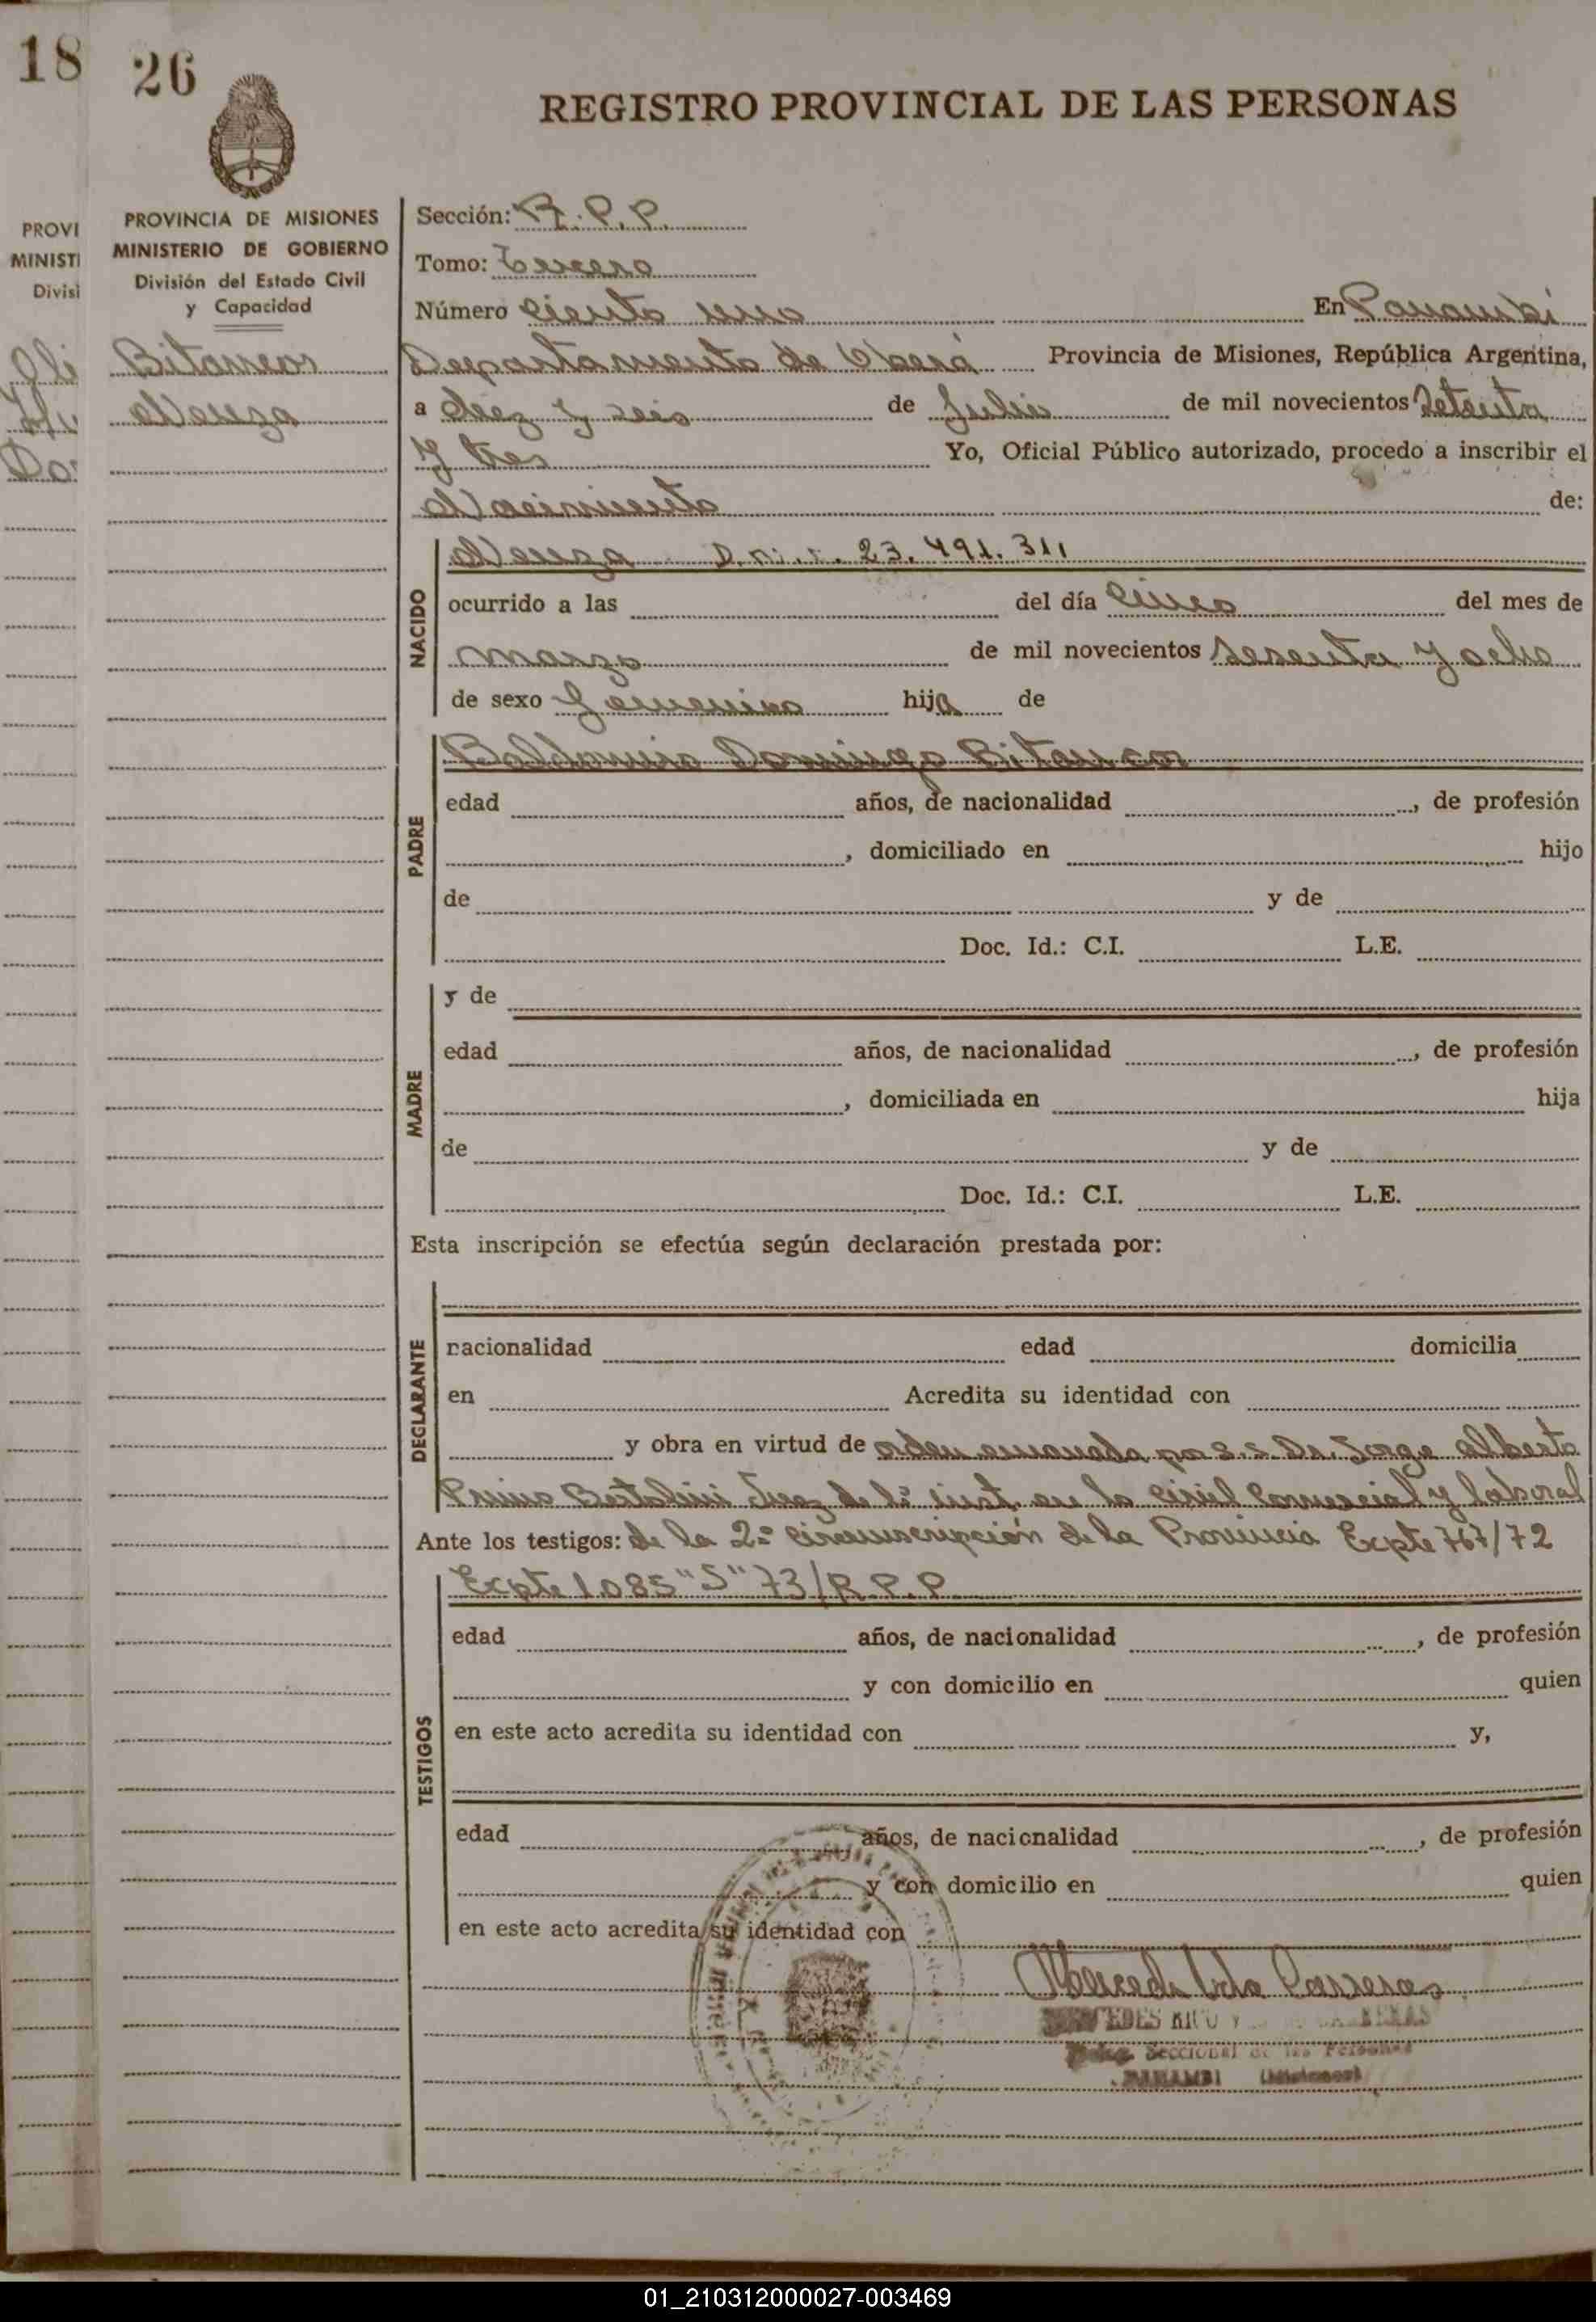 18
26
REGISTRO PROVINCIAL DE LAS PERSONAS
PROVI
MINISTI
Divisi
PROVINCIA DE MISIONES
MINISTERIO DE GOBIERNO
División del Estado Civil
y Capacidad
Oli
Do
Bitancor
Neuza
Sección: R.P.P.
Tomo: Tercero
Número ciento uno En Panambí
Departamento de Oberá Provincia de Misiones, República Argentina,
a diez y seis de Julio de mil novecientos setenta
y tres Yo, Oficial Público autorizado, procedo a inscribir el
Nacimiento de:
NACIDO
Neuza D.N.I. 23.491.311
ocurrido a las del día cinco del mes de
marzo de mil novecientos sesenta y ocho
de sexo femenino hija de
PADRE
Baldomiro Domingo Bitancor
edad años, de nacionalidad , de profesión
, domiciliado en hijo
de y de
Doc. Id.: C.I. L.E.
MADRE
y de
edad años, de nacionalidad , de profesión
, domiciliada en hija
de y de
Doc. Id.: C.I. L.E.
Esta inscripción se efectúa según declaración prestada por:
DECLARANTE
nacionalidad edad domicilia
en Acredita su identidad con
y obra en virtud de orden emanada por S.S. Dr. Jorge Alberto
Primo Bertolini Juez de 1ª inst. en lo civil Comercial y laboral
Ante los testigos: de la 2ª circunscripción de la Provincia Expte 767/72
Expte 1.085 "S" 73/R.P.P
TESTIGOS
edad años, de nacionalidad , de profesión
y con domicilio en quien
en este acto acredita su identidad con y,
edad años, de nacionalidad , de profesión
y con domicilio en quien
en este acto acredita su identidad con
MERCEDES RICO
Seccional de las Personas
PANAMBI (Misiones)
01_210312000027-003469